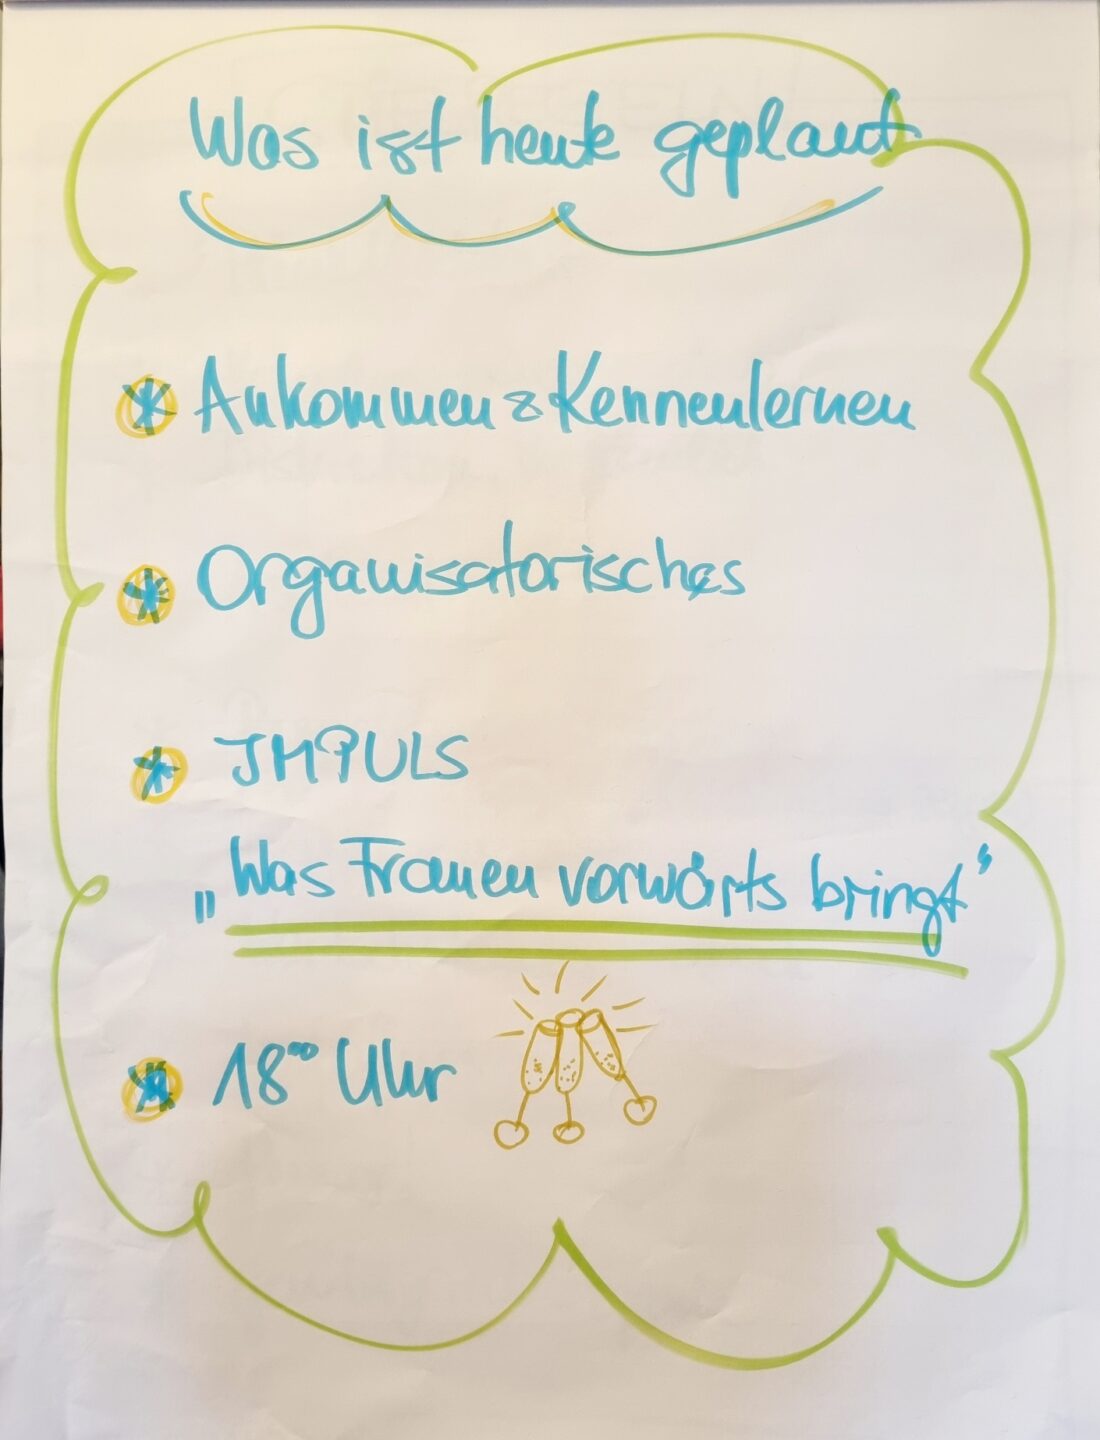 Was ist heute geplant
Ankommen & Kennenlernen
Organisatorisches
IMPULS
„Was Frauen vorwärts bringt“
18⁰⁰ Uhr